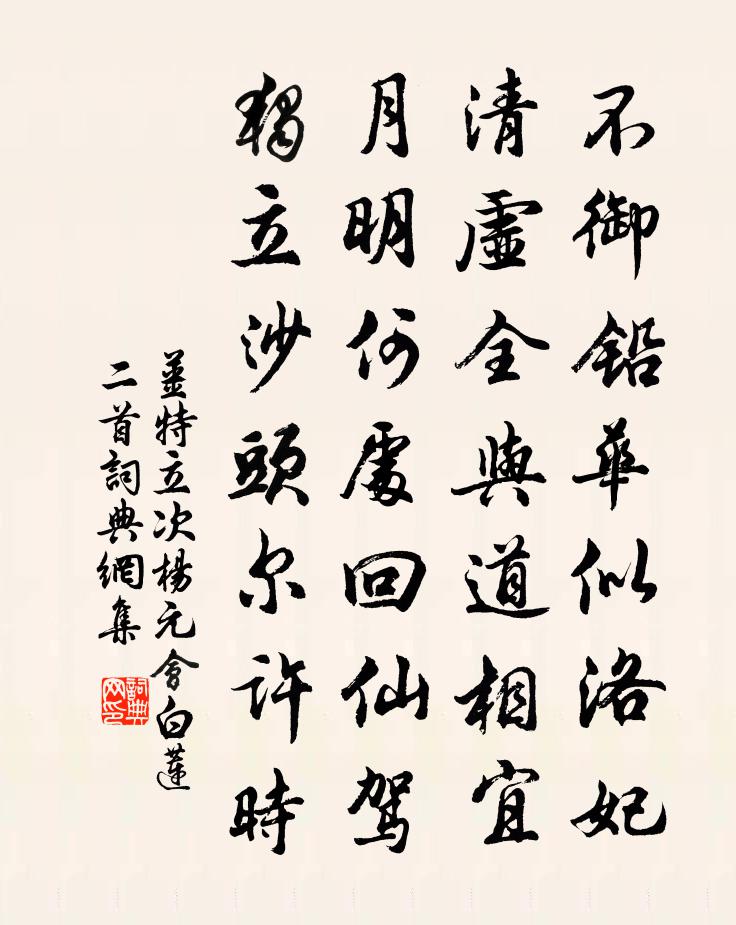 不御鉛華似洛妃
清虛全與道相宜
月明何處回仙駕
獨立沙頭尔許時
姜特立次楊元會白蓮
二首詞典網集
詞典
网印